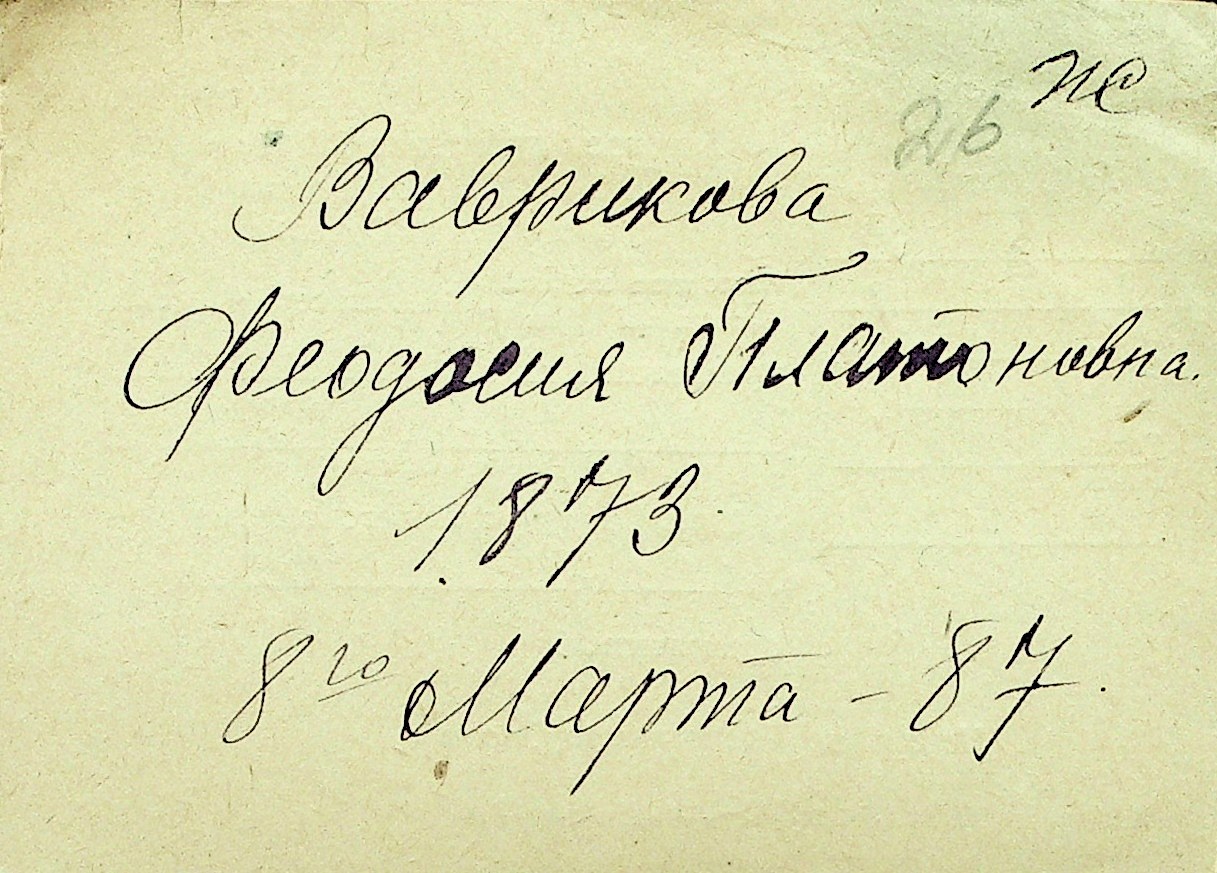 пе
26
Ваврикова
Феодосия Платоновна.
1873.
8го Марта - 87.